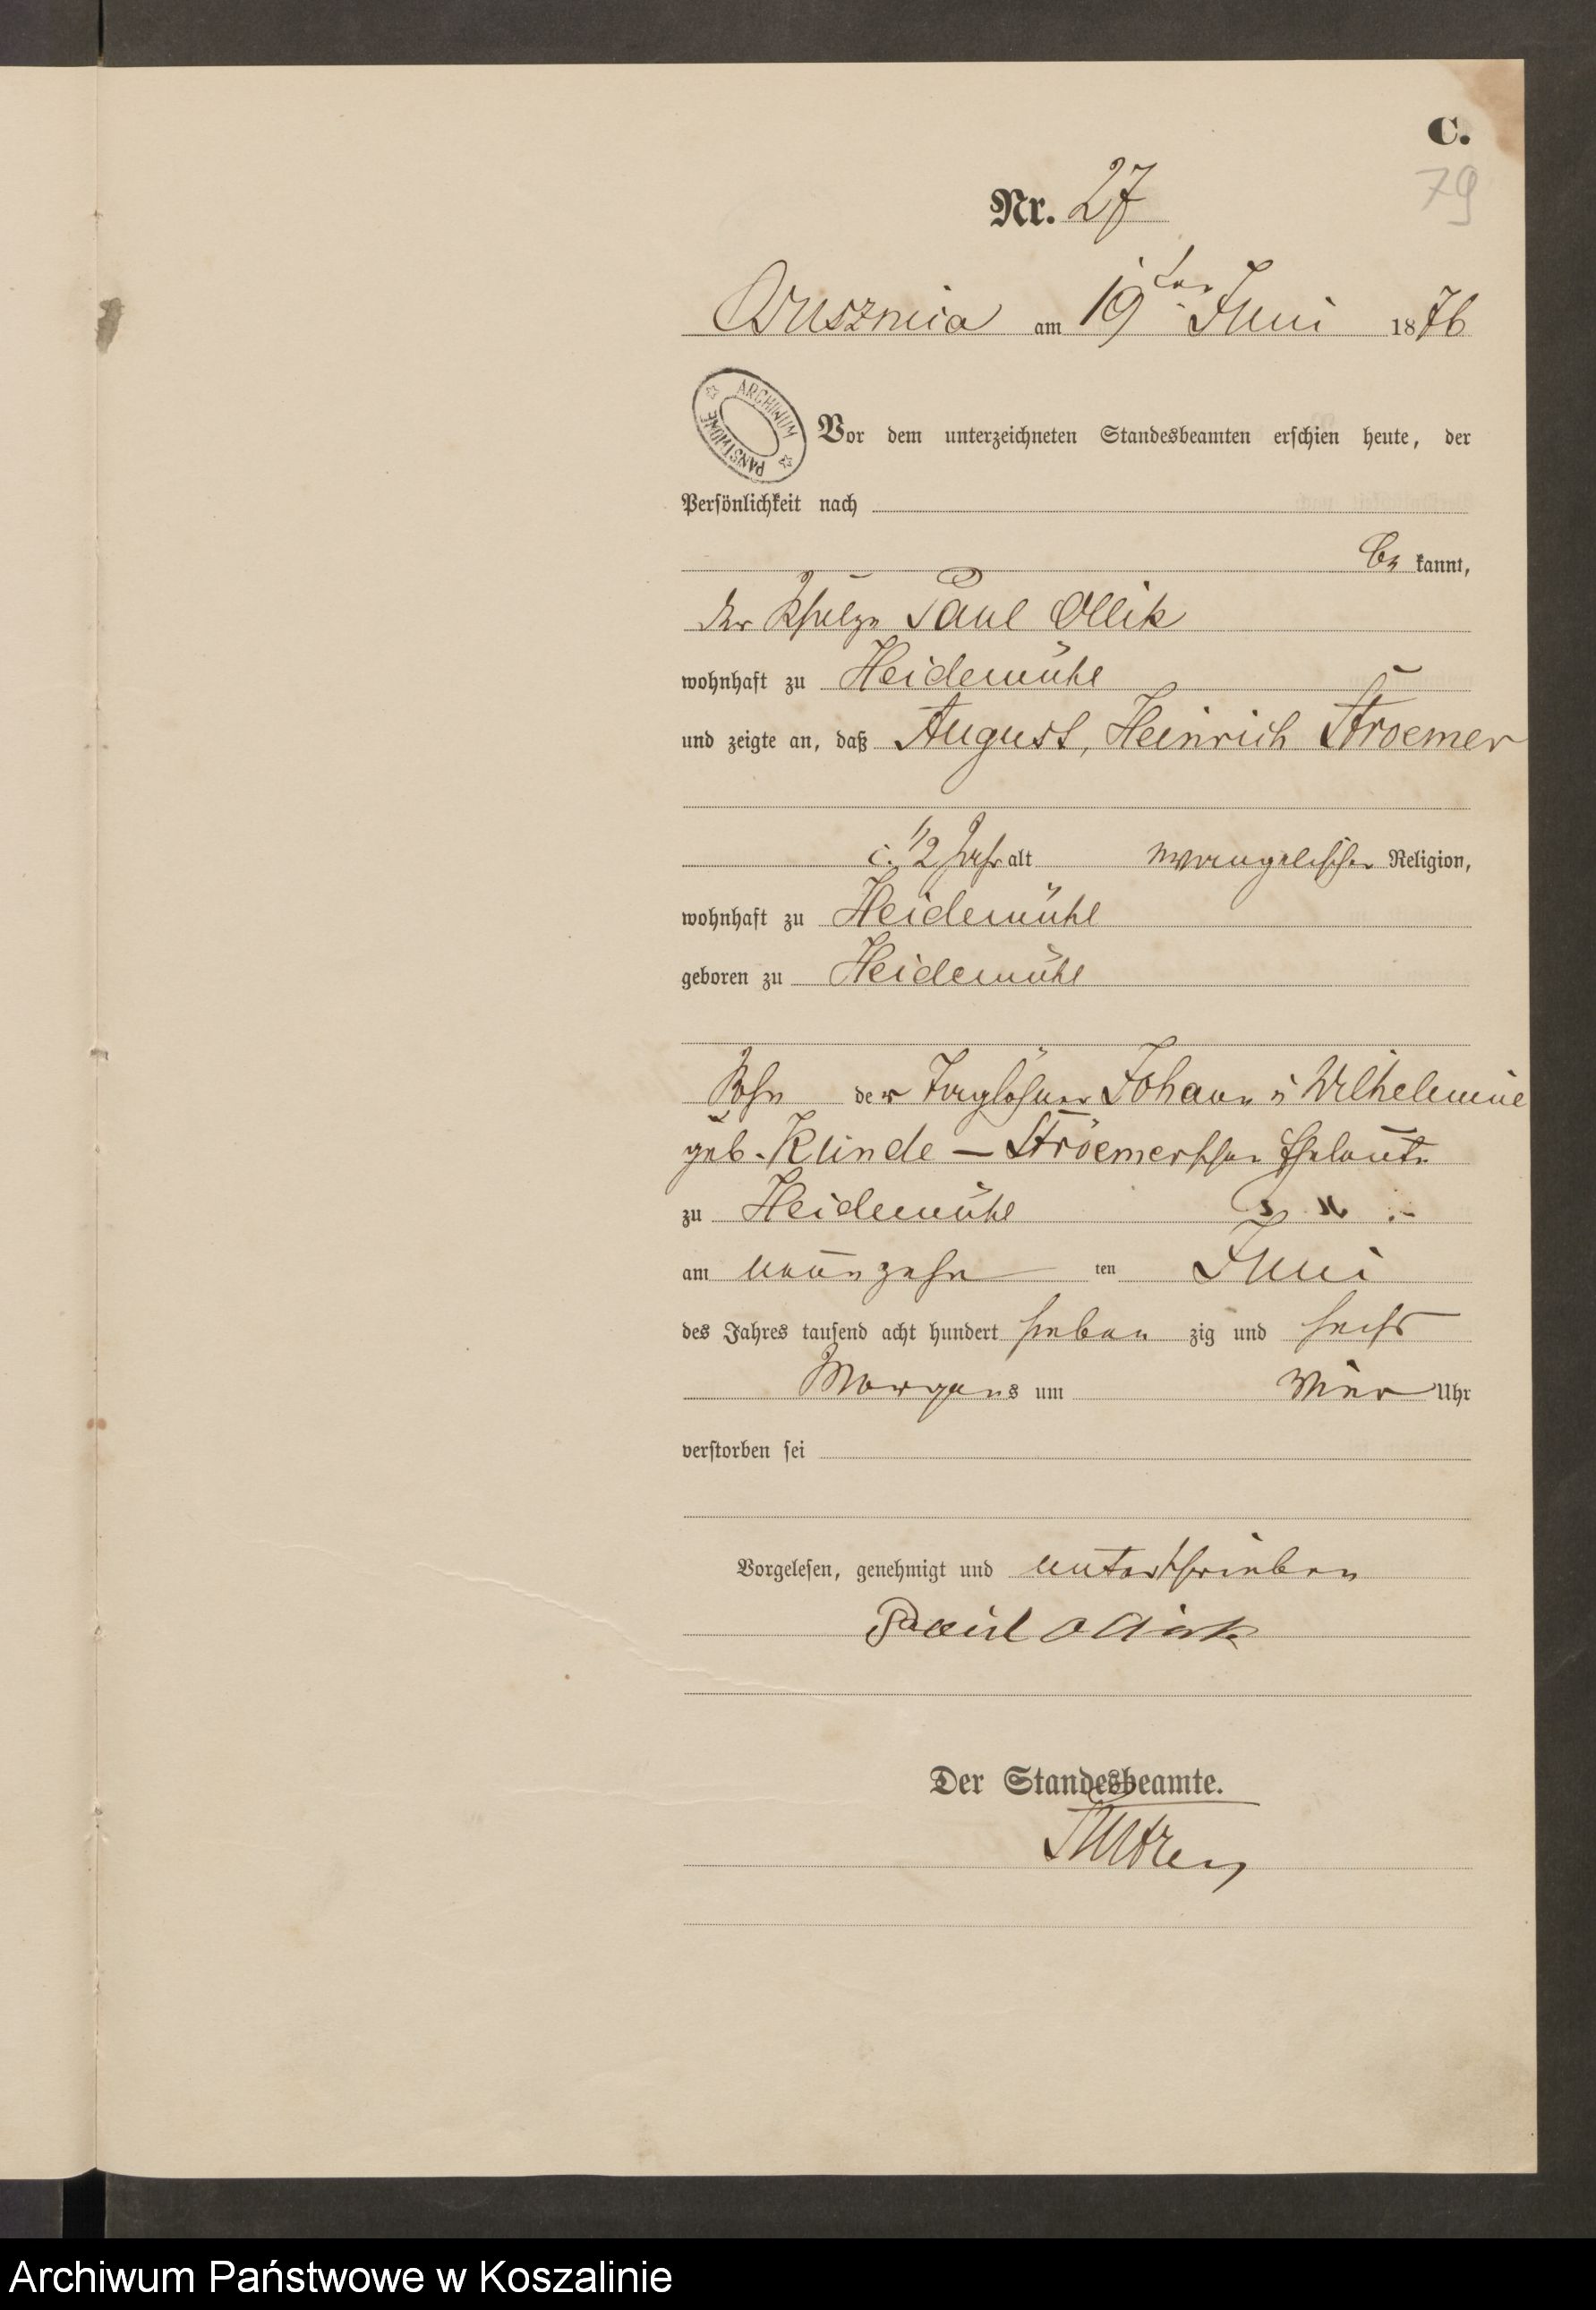 C.
79
Nr. 27
Brusznia am 19ten Juni 1876
ARCHIWUM PAŃSTWOWE
Vor dem unterzeichneten Standesbeamten erschien heute, der
Persönlichkeit nach
be kannt,
der Schulze Paul Ollik
wohnhaft zu Heidemühl
und zeigte an, daß August, Heinrich Stroemer
c. 1/2 Jahr alt evangelischer Religion,
wohnhaft zu Heidemühl
geboren zu Heidemühl
Sohn der Taglöhner Johann u Wilhelmine
geb. Klinde — Stroemerschen Eheleute
zu Heidemühl
am neunzehn ten Juni
des Jahres tausend acht hundert sieben zig und sechs
Morgens um vier Uhr
verstorben sei
Vorgelesen, genehmigt und unterschrieben
Paul Ollik
Der Standesbeamte.
Archiwum Państwowe w Koszalinie